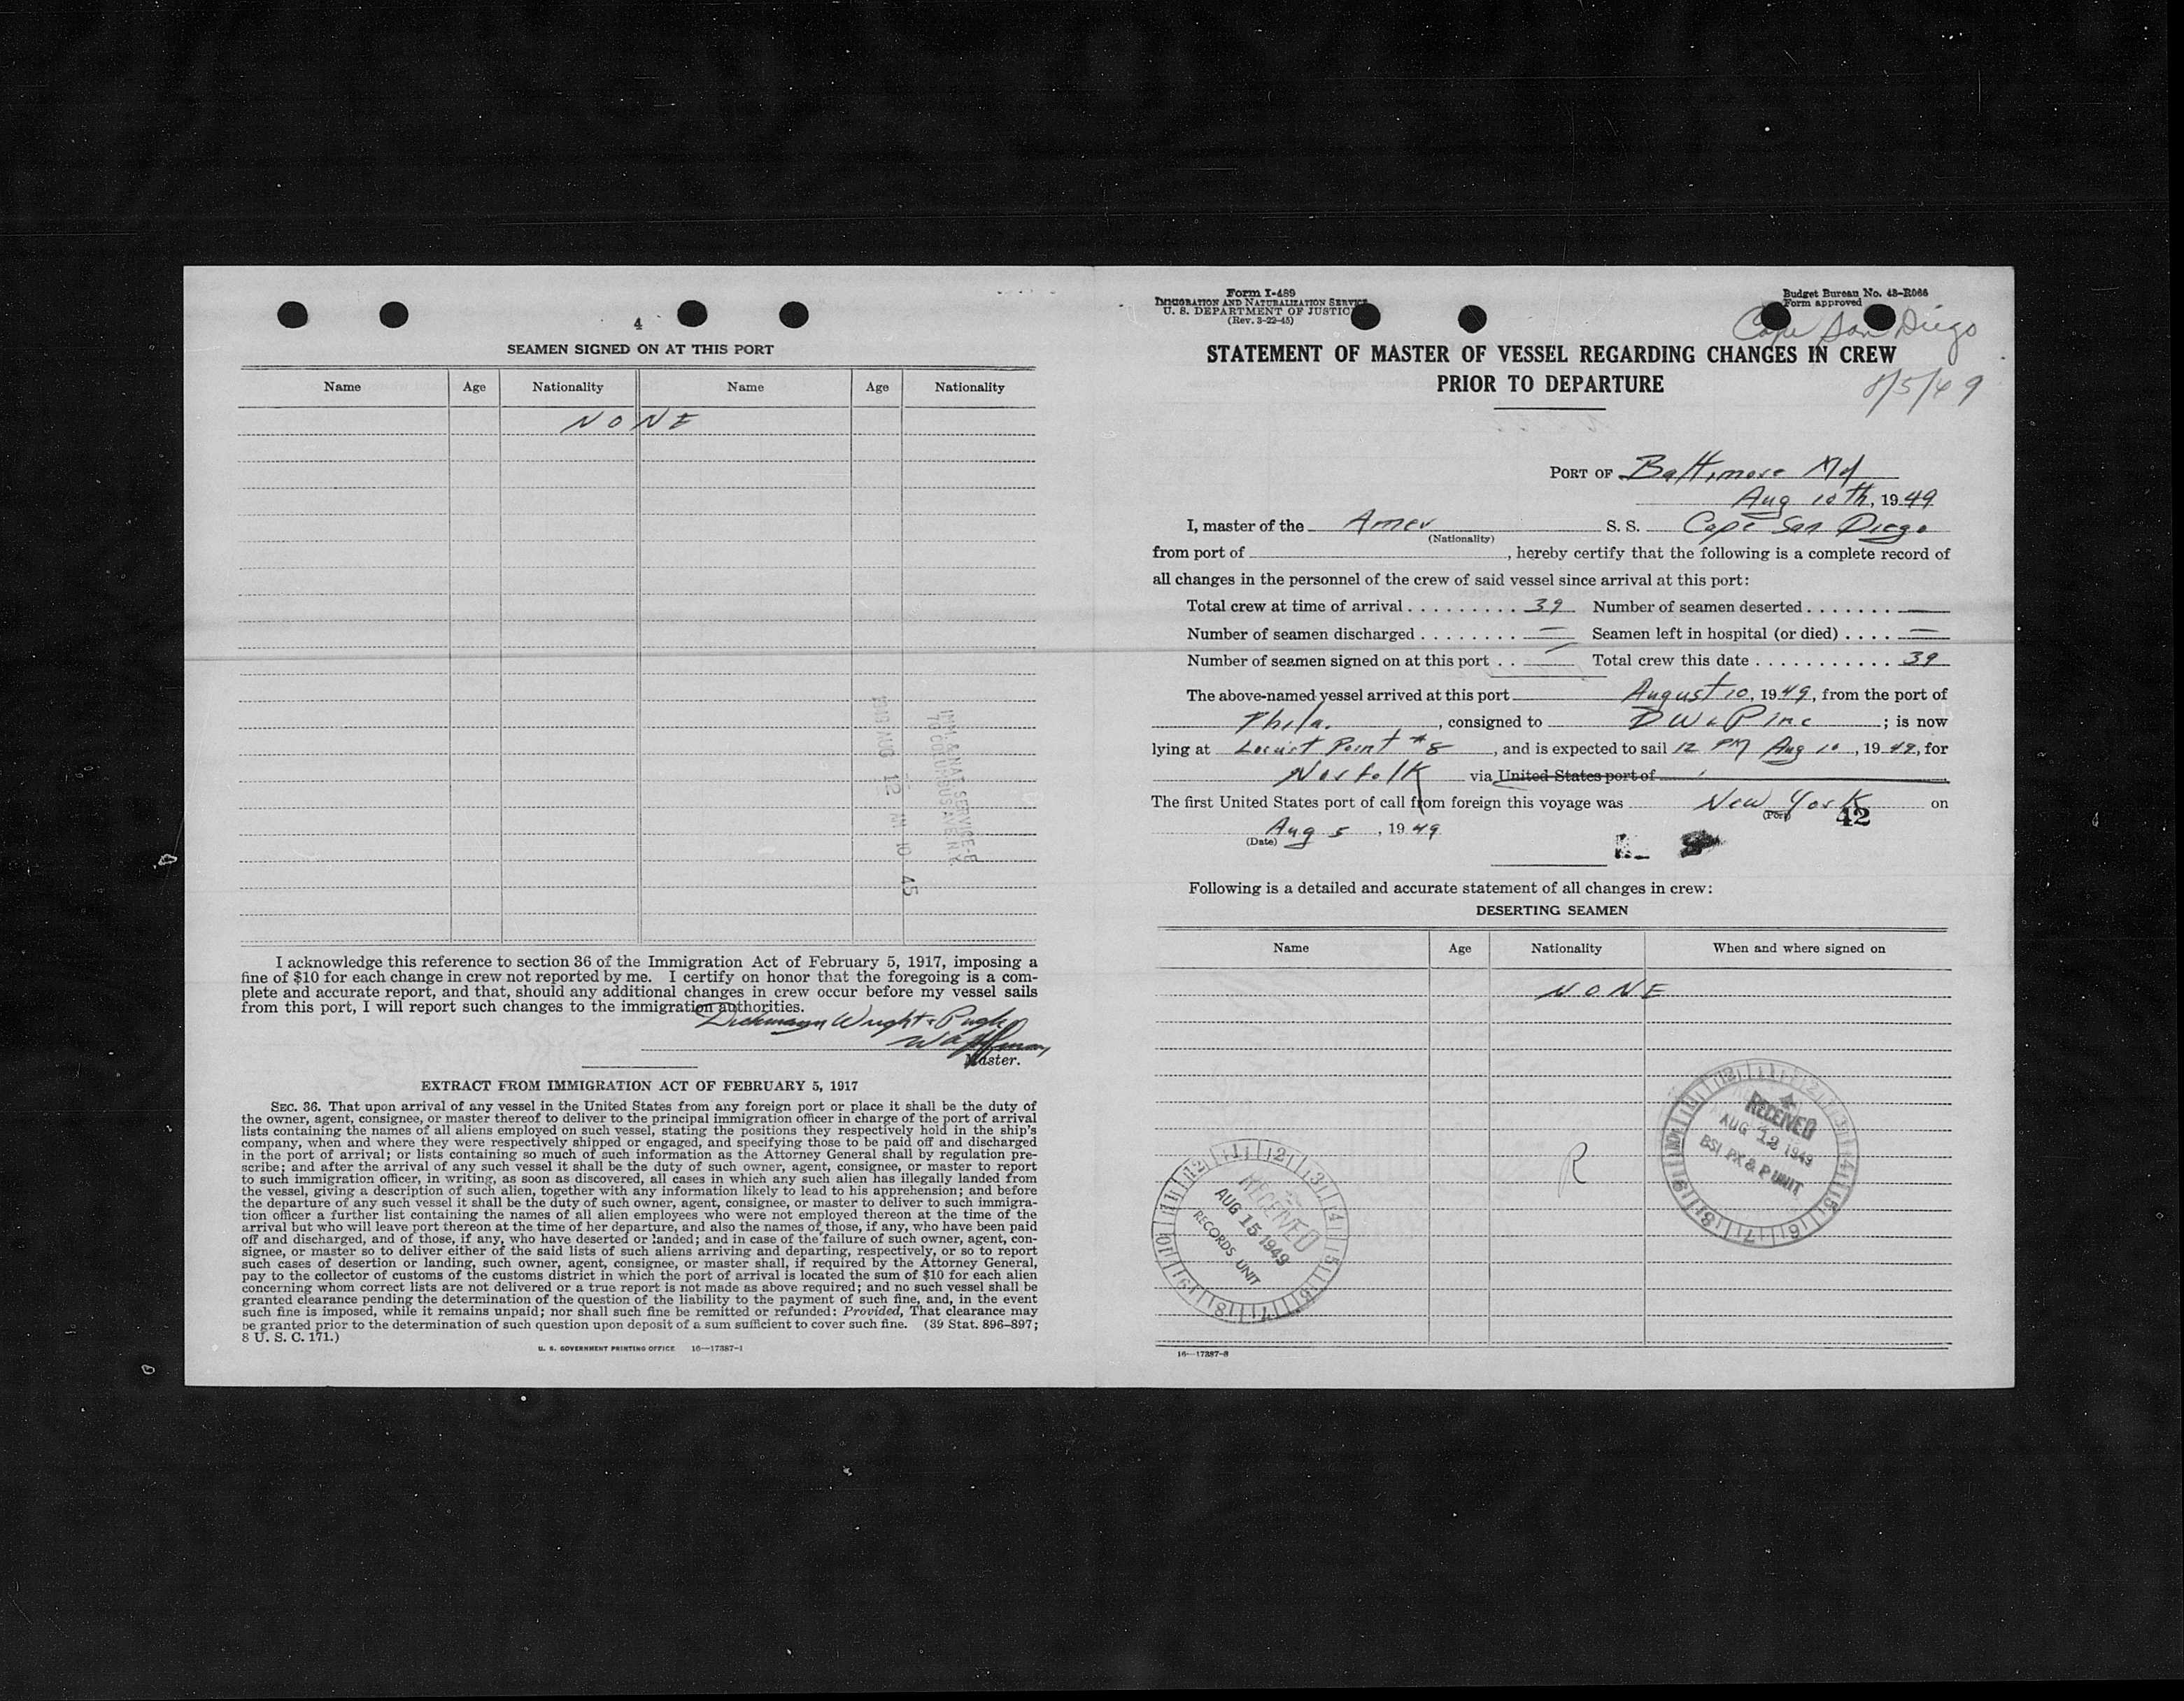 4
SEAMEN SIGNED ON AT THIS PORT
Name Age Nationality Name Age Nationality
NONE
IMM. & NAT. SERVICE-E
70 COLUMBUS AVE N.Y.
1949 AUG 12 AM 10 45
I acknowledge this reference to section 36 of the Immigration Act of February 5, 1917, imposing a
fine of $10 for each change in crew not reported by me. I certify on honor that the foregoing is a com-
plete and accurate report, and that, should any additional changes in crew occur before my vessel sails
from this port, I will report such changes to the immigration authorities.
Dichmann Wright & Pugh
Master.
EXTRACT FROM IMMIGRATION ACT OF FEBRUARY 5, 1917
SEC. 36. That upon arrival of any vessel in the United States from any foreign port or place it shall be the duty of
the owner, agent, consignee, or master thereof to deliver to the principal immigration officer in charge of the port of arrival
lists containing the names of all aliens employed on such vessel, stating the positions they respectively hold in the ship's
company, when and where they were respectively shipped or engaged, and specifying those to be paid off and discharged
in the port of arrival; or lists containing so much of such information as the Attorney General shall by regulation pre-
scribe; and after the arrival of any such vessel it shall be the duty of such owner, agent, consignee, or master to report
to such immigration officer, in writing, as soon as discovered, all cases in which any such alien has illegally landed from
the vessel, giving a description of such alien, together with any information likely to lead to his apprehension; and before
the departure of any such vessel it shall be the duty of such owner, agent, consignee, or master to deliver to such immigra-
tion officer a further list containing the names of all alien employees who were not employed thereon at the time of the
arrival but who will leave port thereon at the time of her departure, and also the names of those, if any, who have been paid
off and discharged, and of those, if any, who have deserted or landed; and in case of the failure of such owner, agent, con-
signee, or master so to deliver either of the said lists of such aliens arriving and departing, respectively, or so to report
such cases of desertion or landing, such owner, agent, consignee, or master shall, if required by the Attorney General,
pay to the collector of customs of the customs district in which the port of arrival is located the sum of $10 for each alien
concerning whom correct lists are not delivered or a true report is not made as above required; and no such vessel shall be
granted clearance pending the determination of the question of the liability to the payment of such fine, and, in the event
such fine is imposed, while it remains unpaid; nor shall such fine be remitted or refunded: Provided, That clearance may
be granted prior to the determination of such question upon deposit of a sum sufficient to cover such fine. (39 Stat. 896–897;
8 U. S. C. 171.)
U. S. GOVERNMENT PRINTING OFFICE 16—17387-1
Form I-489
IMMIGRATION AND NATURALIZATION SERVICE
U. S. DEPARTMENT OF JUSTICE
(Rev. 3-22-45)
Budget Bureau No. 43-R066
Form approved
Cape San Diego
8/5/49
STATEMENT OF MASTER OF VESSEL REGARDING CHANGES IN CREW
PRIOR TO DEPARTURE
PORT OF Baltimore Md
Aug 10th, 1949
I, master of the Amer S. S. Cape San Diego
(Nationality)
from port of , hereby certify that the following is a complete record of
all changes in the personnel of the crew of said vessel since arrival at this port:
Total crew at time of arrival . . . . . . . . . 39 Number of seamen deserted . . . . . . . —
Number of seamen discharged . . . . . . . . — Seamen left in hospital (or died) . . . . —
Number of seamen signed on at this port . . — Total crew this date . . . . . . . . . . . 39
The above-named vessel arrived at this port August 10, 1949, from the port of
Phila. , consigned to DW&P Inc ; is now
lying at Locust Point #8 , and is expected to sail 12 PM Aug 10, 1949, for
Norfolk via United States port of
The first United States port of call from foreign this voyage was New York on
(Port) 42
Aug 5, 1949
(Date)
Following is a detailed and accurate statement of all changes in crew:
DESERTING SEAMEN
Name Age Nationality When and where signed on
NONE
R
12 1 2 3 4 5 6 7 8 9 10 11
RECEIVED
AUG 12 1949
BSI PX & P UNIT
12 1 2 3 4 5 6 7 8 9 10 11
RECEIVED
AUG 15 1949
RECORDS UNIT
16—17387-8